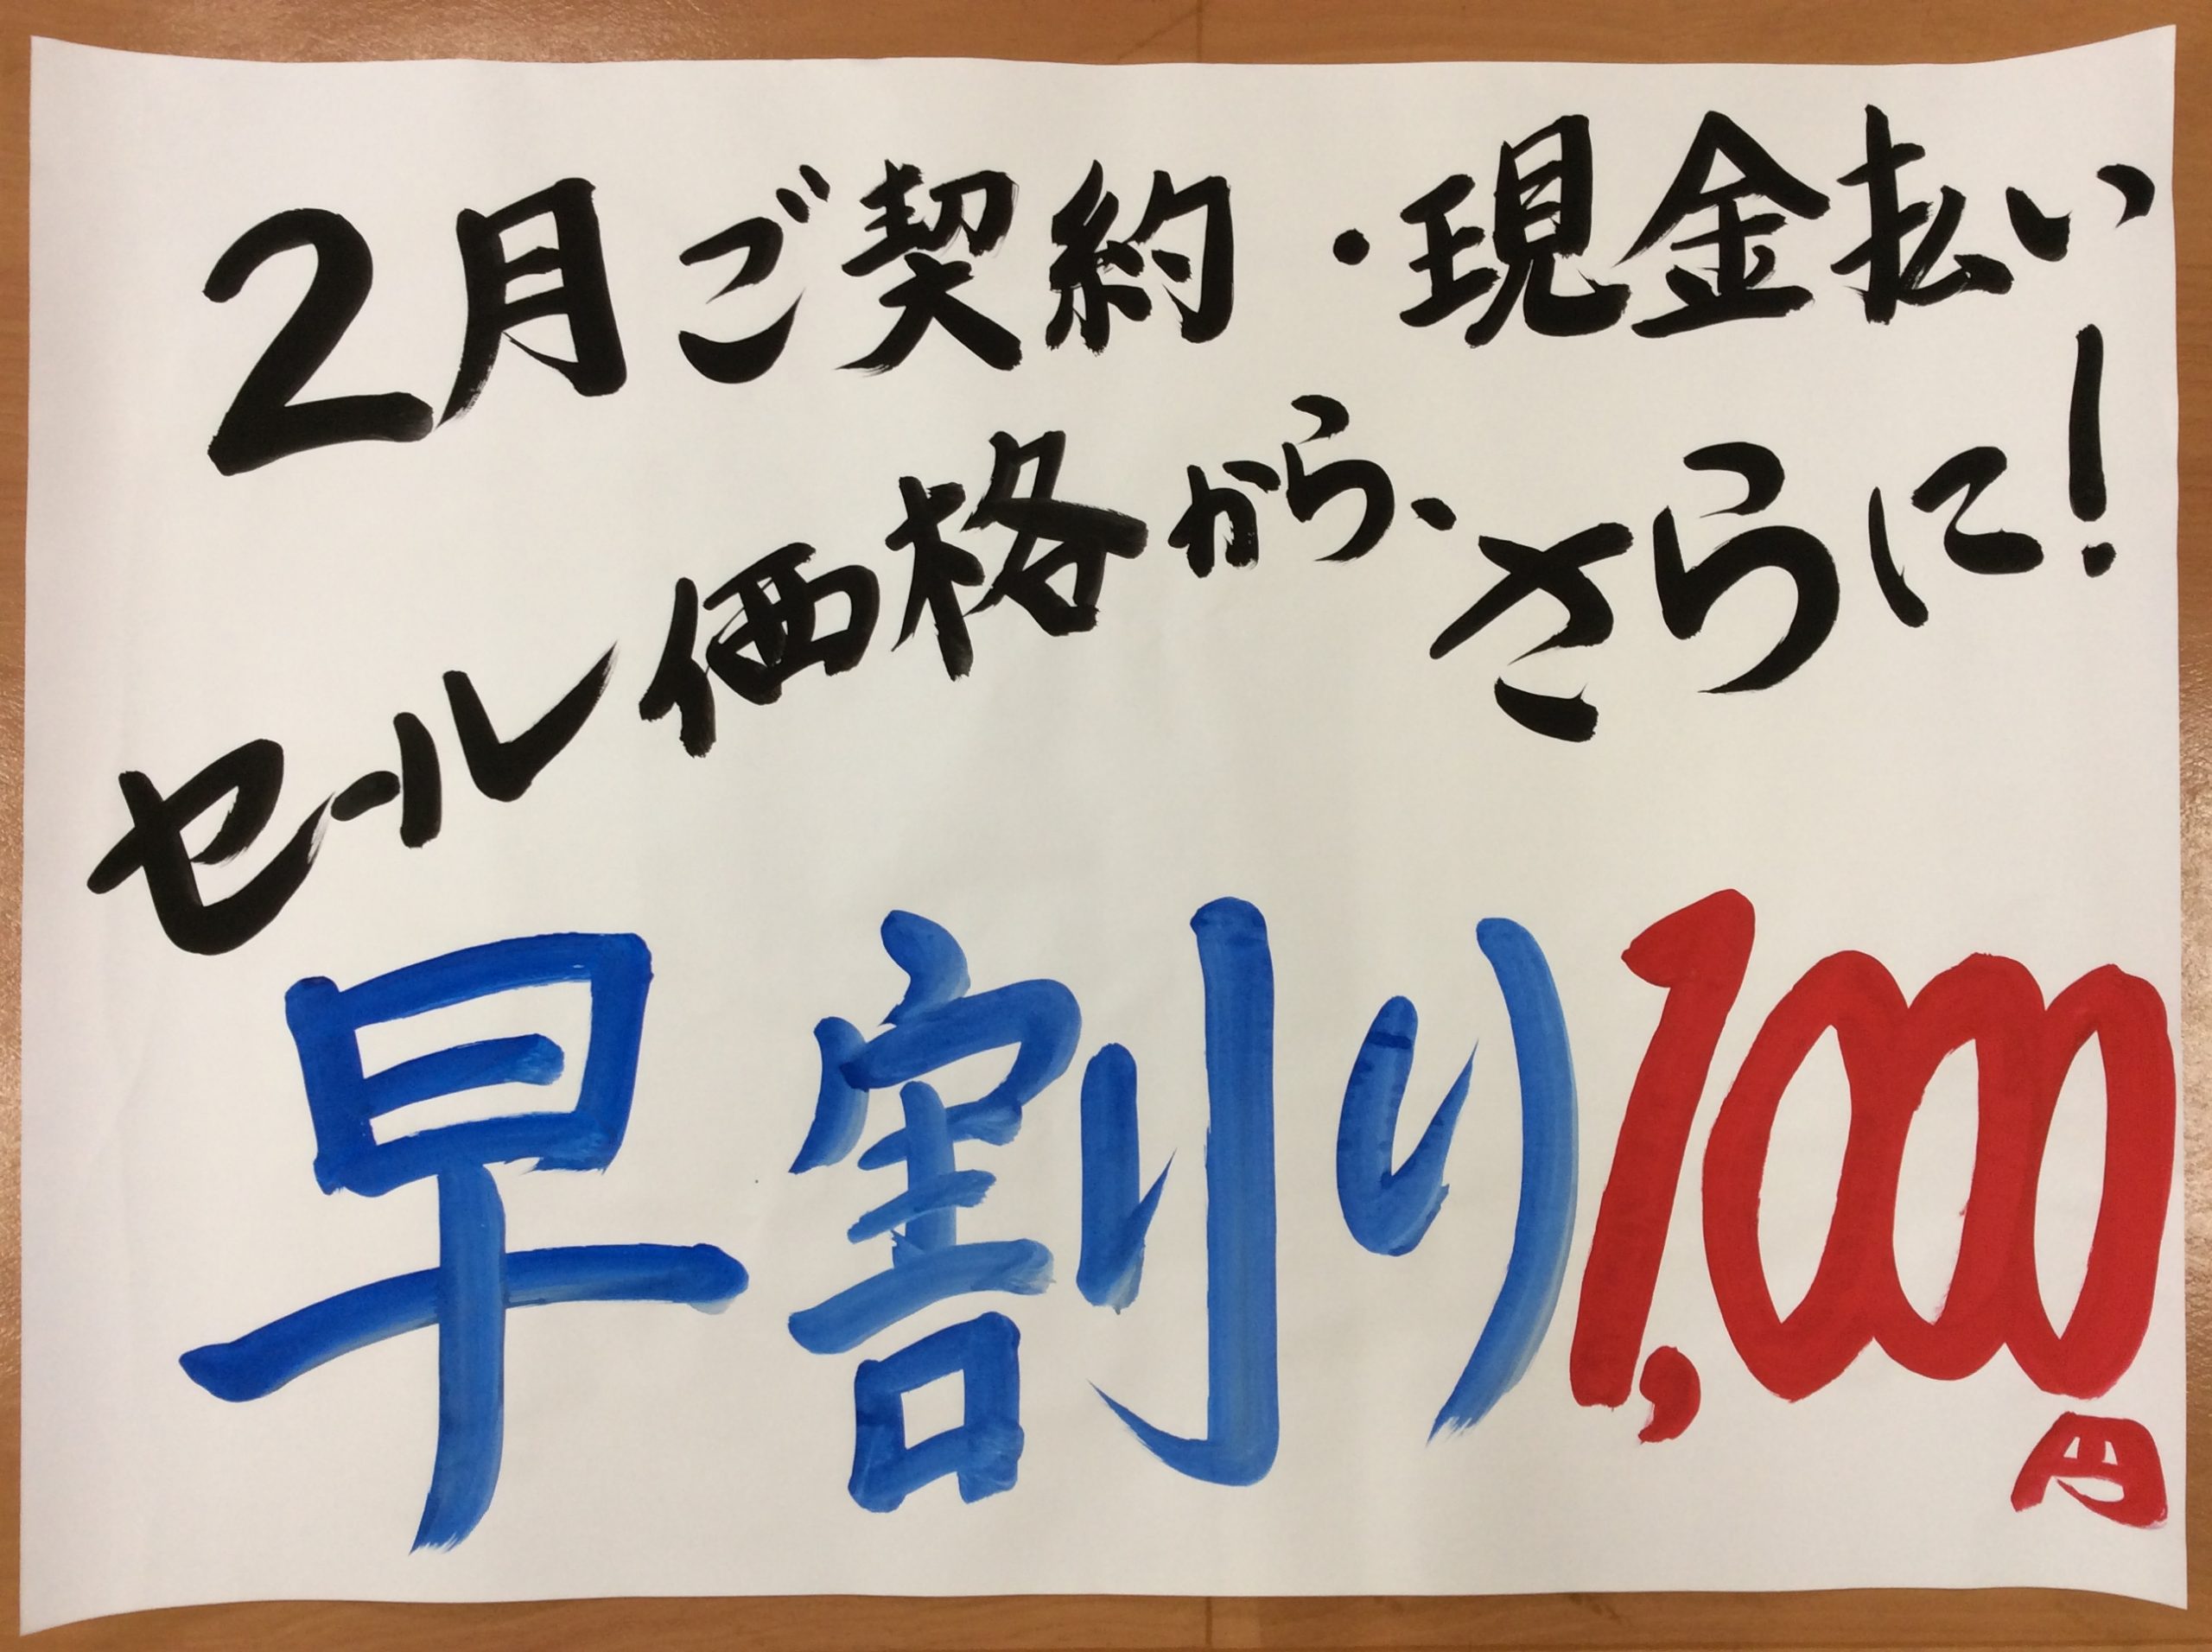 2月ご契約・現金払い
セール価格から、さらに!
早割り1,000円